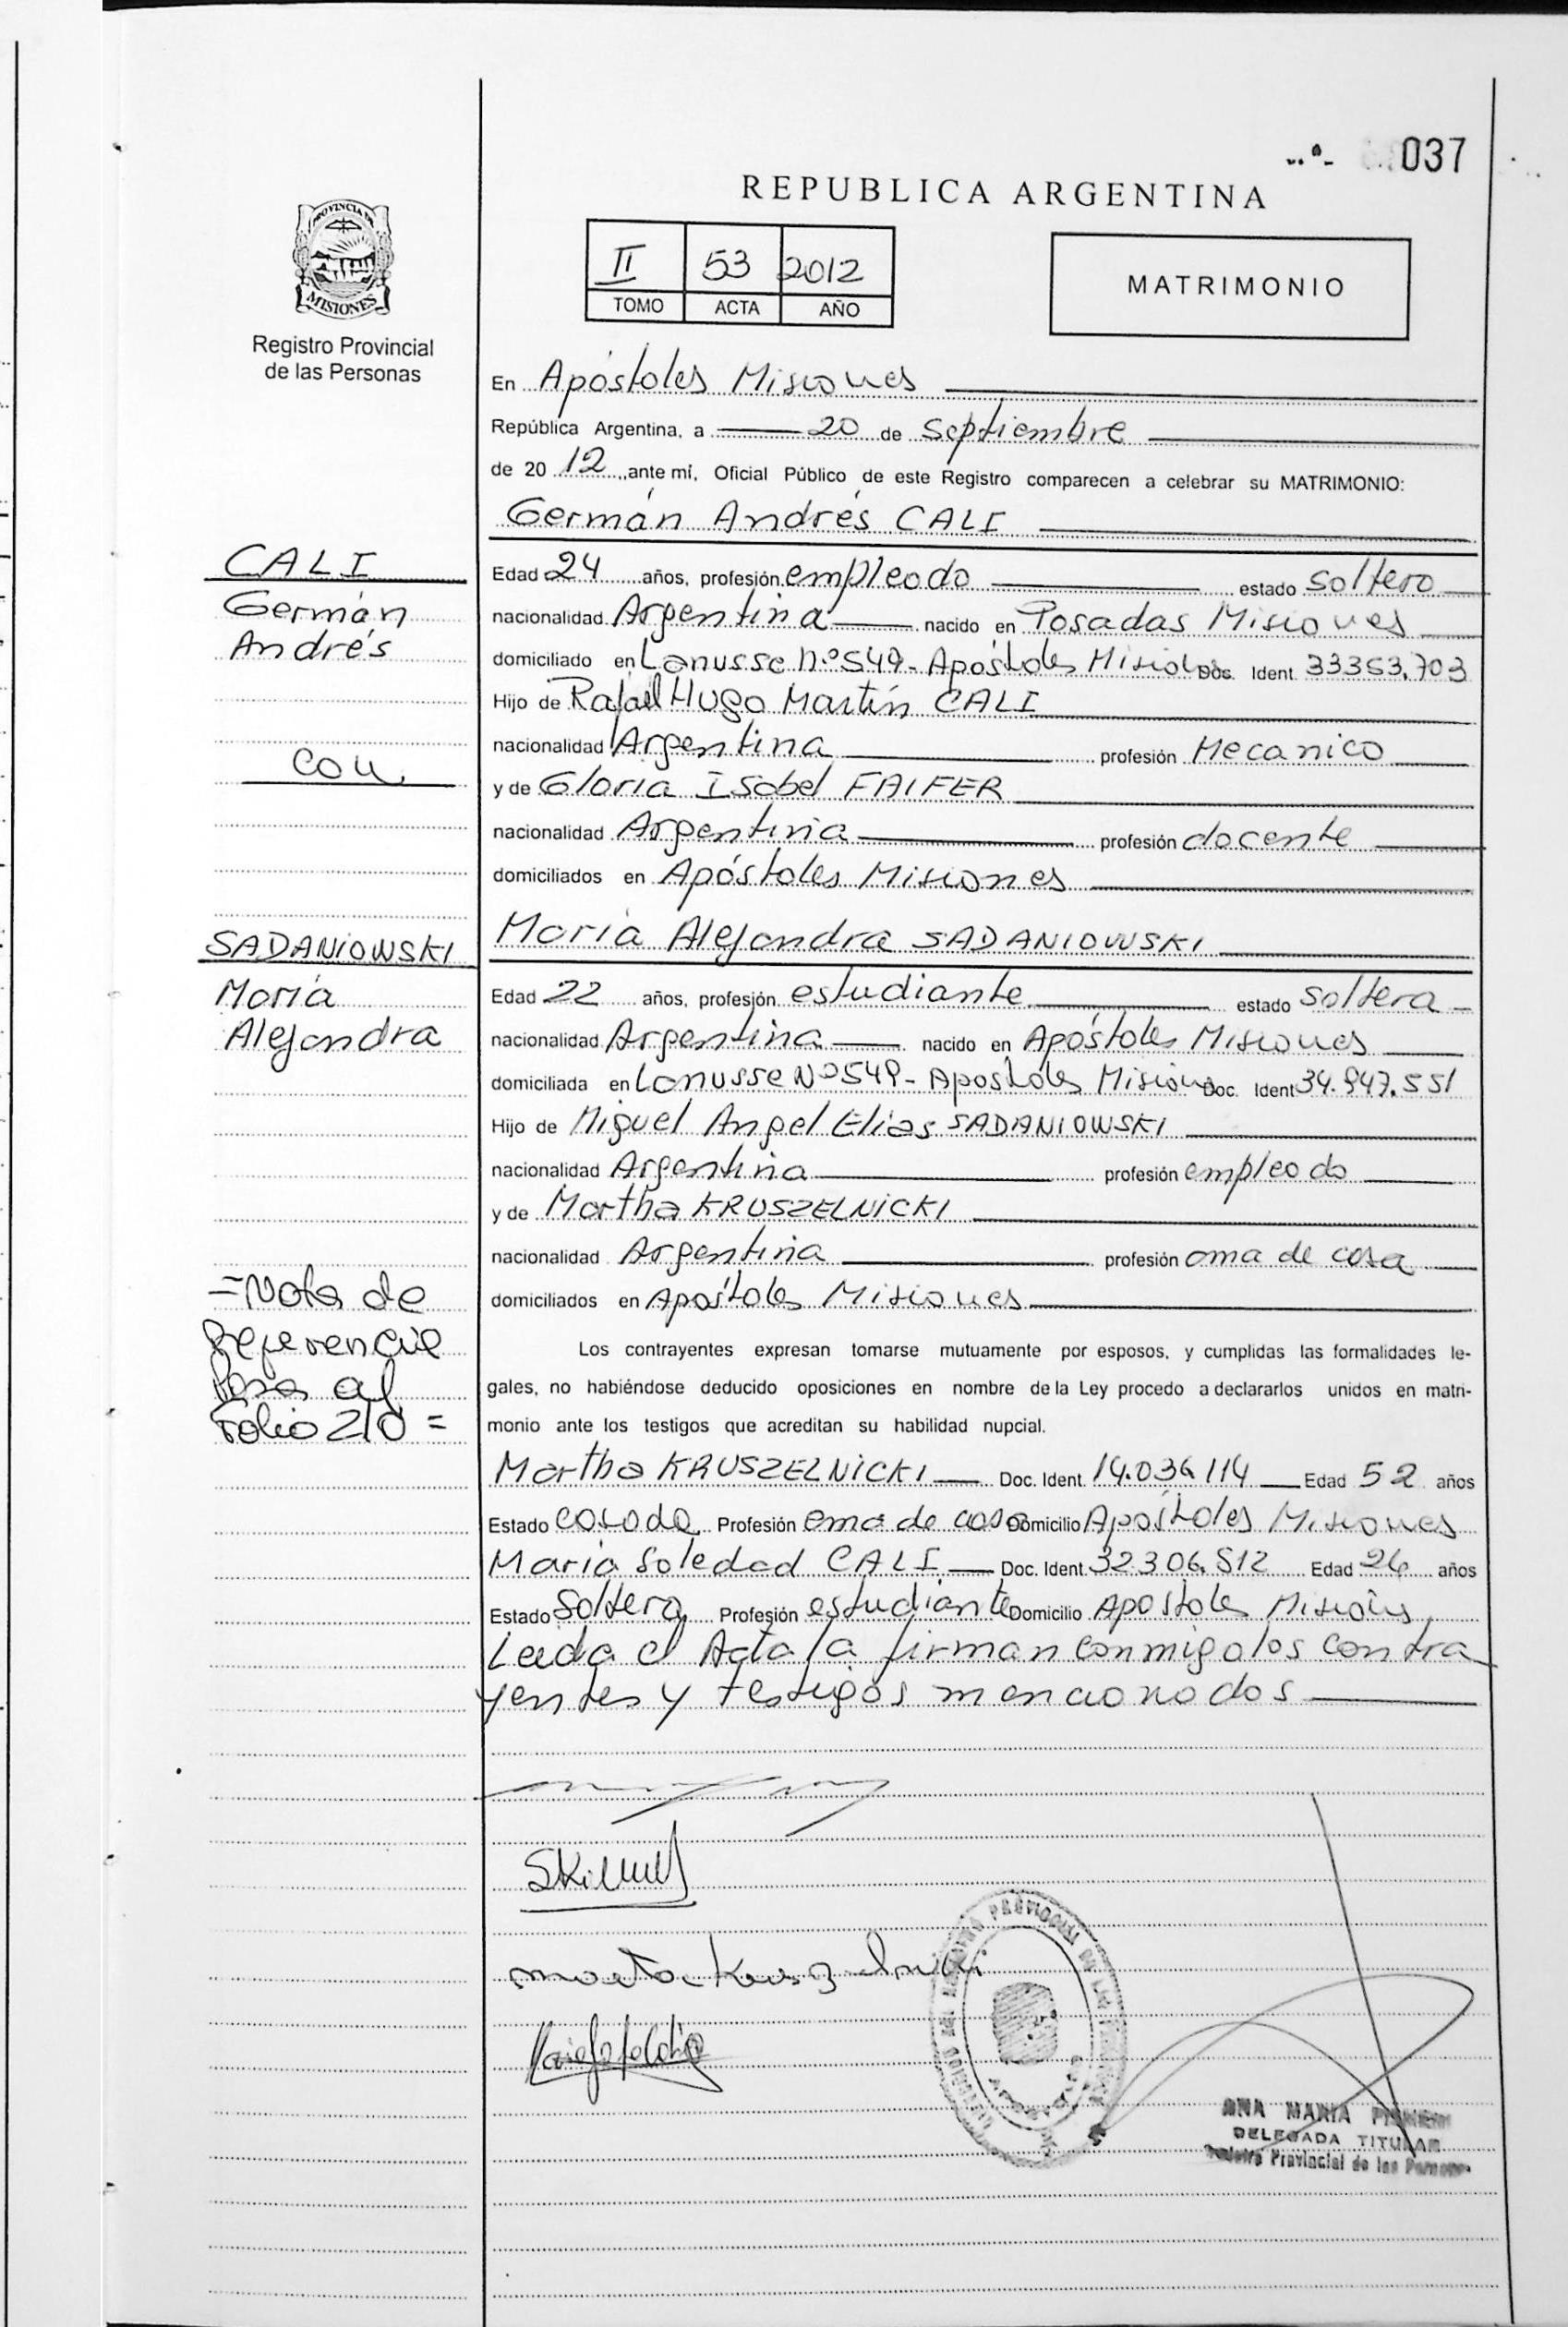 037
REPUBLICA ARGENTINA
PROVINCIA DE
MISIONES
Registro Provincial
de las Personas
II 53 2012
TOMO ACTA AÑO
MATRIMONIO
En Apóstoles Misiones
República Argentina, a 20 de septiembre
de 20 12 ante mí, Oficial Público de este Registro comparecen a celebrar su MATRIMONIO:
Germán Andrés CALI
CALI
Germán
Andrés
con
SADANIOWSKI
María
Alejandra
=Nota de
Referencia
Pasa al
Folio 210=
Edad 24 años, profesión empleado estado soltero
nacionalidad Argentina nacido en Posadas Misiones
domiciliado en Lanusse Nº 549- Apóstoles Misiones Doc. Ident. 33353.703
Hijo de Rafael Hugo Martín CALI
nacionalidad Argentina profesión Mecanico
y de Gloria Isabel FAIFER
nacionalidad Argentina profesión docente
domiciliados en Apóstoles Misiones
María Alejandra SADANIOWSKI
Edad 22 años, profesión estudiante estado soltera
nacionalidad Argentina nacido en Apóstoles Misiones
domiciliada en Lanusse Nº 549- Apostoles Misiones Doc. Ident 34.947.551
Hijo de Miguel Angel Elias SADANIOWSKI
nacionalidad Argentina profesión empleado
y de Martha KRUSZELNICKI
nacionalidad Argentina profesión ama de casa
domiciliados en Apóstoles Misiones
Los contrayentes expresan tomarse mutuamente por esposos, y cumplidas las formalidades le-
gales, no habiéndose deducido oposiciones en nombre de la Ley procedo a declararlos unidos en matri-
monio ante los testigos que acreditan su habilidad nupcial.
Martha KRUSZELNICKI Doc. Ident. 14.036.114 Edad 52 años
Estado casada Profesión ama de casa Domicilio Apóstoles Misiones
María Soledad CALI Doc. Ident. 32.306.512 Edad 26 años
Estado Soltera Profesión estudiante Domicilio Apostoles Misiones
Leida el Acta la firman conmigo los contra
yentes y testigos mencionados
ANA MARIA
DELEGADA TITULAR
Registro Provincial de las Personas